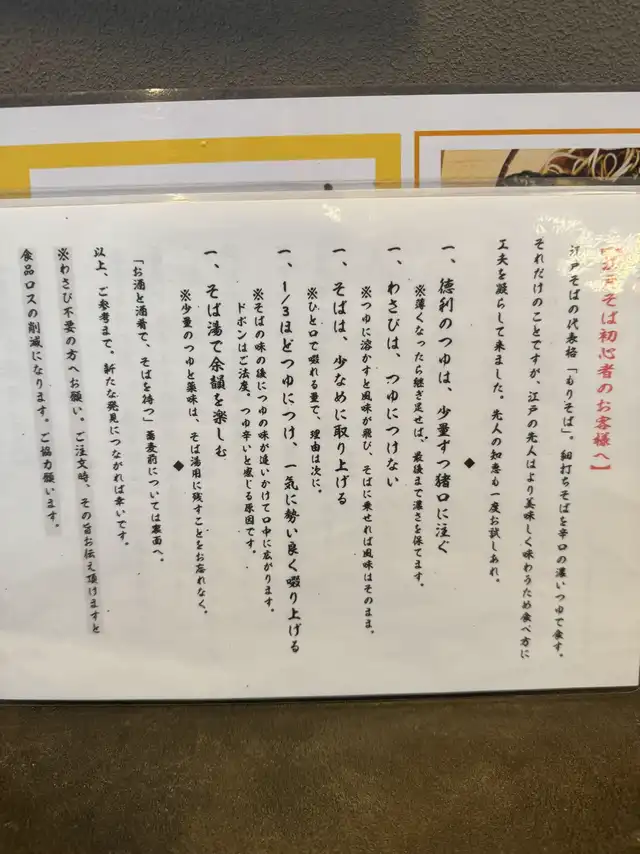 【江戸そば初心者のお客様へ】
江戸そばの代表格「もりそば」。細打ちそばを辛口の濃いつゆで食す。
それだけのことですが、江戸の先人はより美味しく味わうため食べ方に
工夫を凝らして来ました。先人の知恵も一度お試しあれ。
◆
一、徳利のつゆは、少量ずつ猪口に注ぐ
※薄くなったら継ぎ足せば、最後まで濃さを保てます。
一、わさびは、つゆにつけない
※つゆに溶かすと風味が飛び、そばに乗せれば風味はそのまま。
一、そばは、少なめに取り上げる
※ひと口で啜れる量で、理由は次に。
一、1/3ほどつゆにつけ、一気に勢い良く啜り上げる
※そばの味の後につゆの味が追いかけて口中に広がります。
ドボンはご法度。つゆ辛いと感じる原因です。
一、そば湯で余韻を楽しむ
※少量のつゆと薬味は、そば湯用に残すことをお忘れなく。
◆
「お酒と酒肴で、そばを待つ」蕎麦前については裏面へ。
以上、ご参考まで。新たな発見につながれば幸いです。
※わさび不要の方へお願い。ご注文時、その旨お伝え頂けますと
食品ロスの削減になります。ご協力願います。